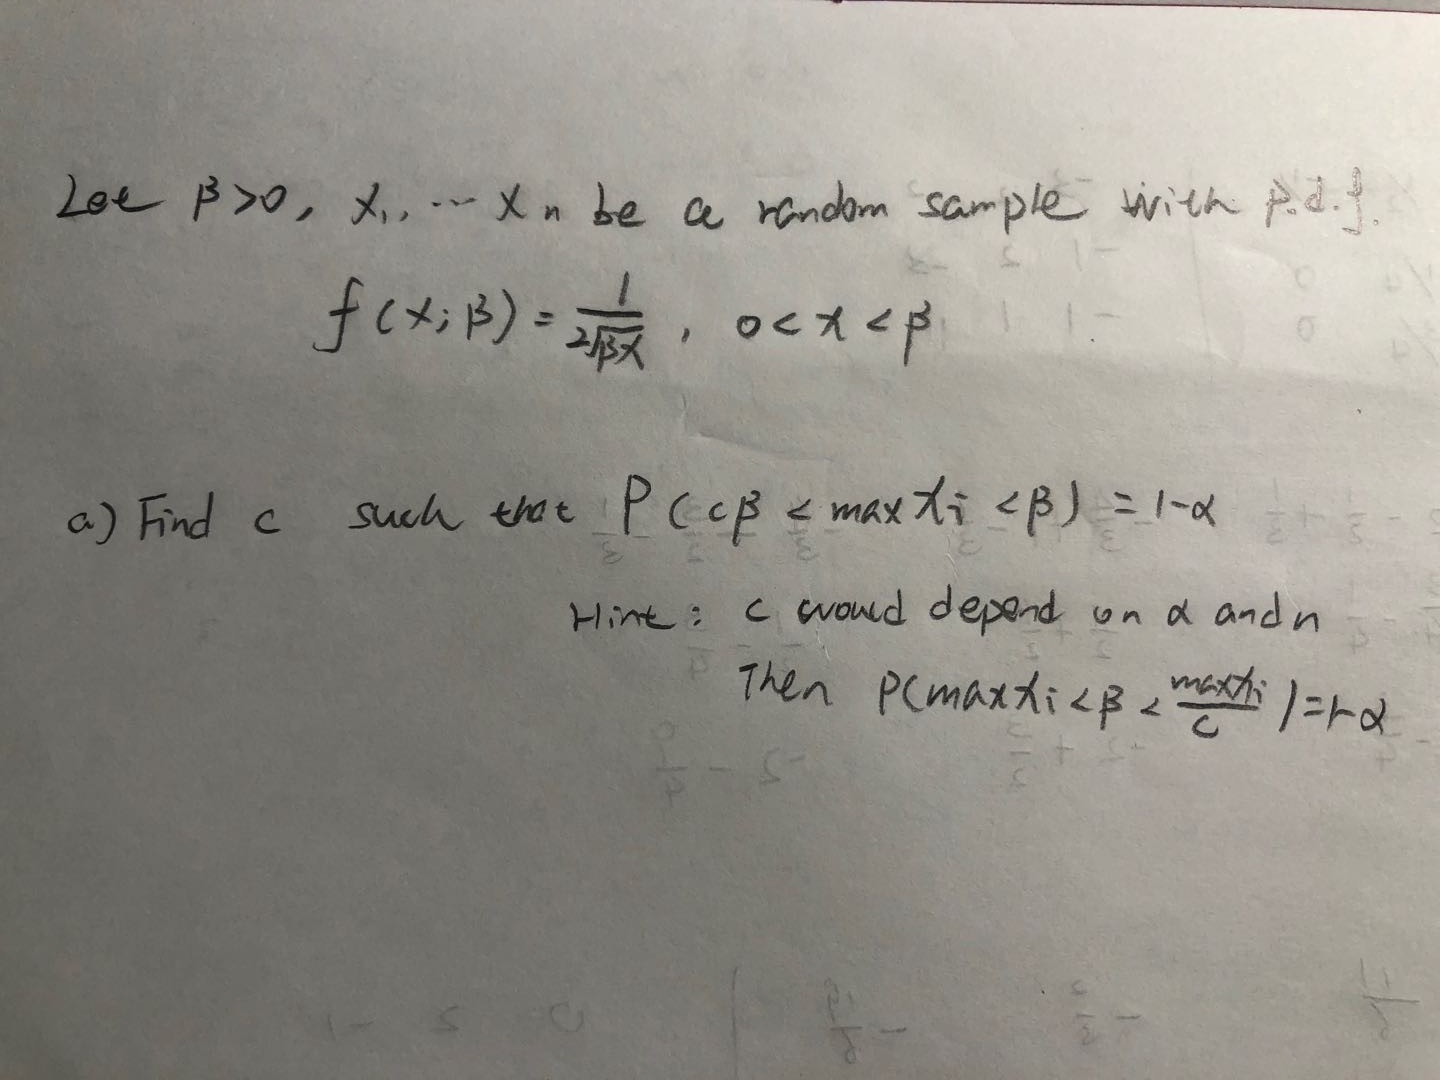 Let β>0, X₁, ... Xₙ be a random sample with p.d.f.
f(x; β) = 1/(2√(βx)), 0 < x < β
a) Find c such that P(cβ < max Xᵢ < β) = 1-α
Hint: c would depend on α and n
Then P(max Xᵢ < β < max Xᵢ/c) = 1-α